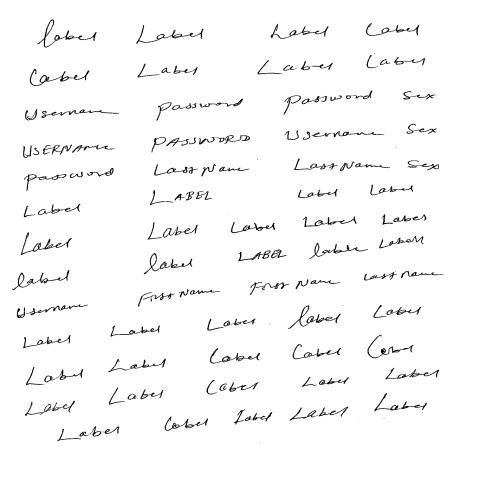 label Label Label Label
Label Label Label Label
Username Password Password Sex
USERNAME PASSWORD Username Sex
Password Last Name Last Name Sex
Label LABEL Label Label
Label Label Label Label Label
label label LABEL lable Label
Username First Name First Name Last Name
Label Label Label label Label
Label Label Label Label
Label Label Label Label Label
Label Label Label Label Label